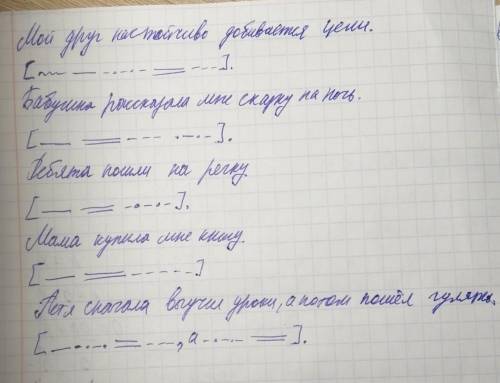 Мой друг настойчиво добивается цели.
[ ~~~ — -.-. = --- ].
Бабушка рассказала мне сказку на ночь.
[ — = --- -.-.- ].
Ребята пошли на речку.
[ — = -.-.- ].
Мама купила мне книгу.
[ — = ---- ]
Петя сначала выучил уроки, а потом пошёл гулять.
[ — .-.. = ---, а -.-.. = ].